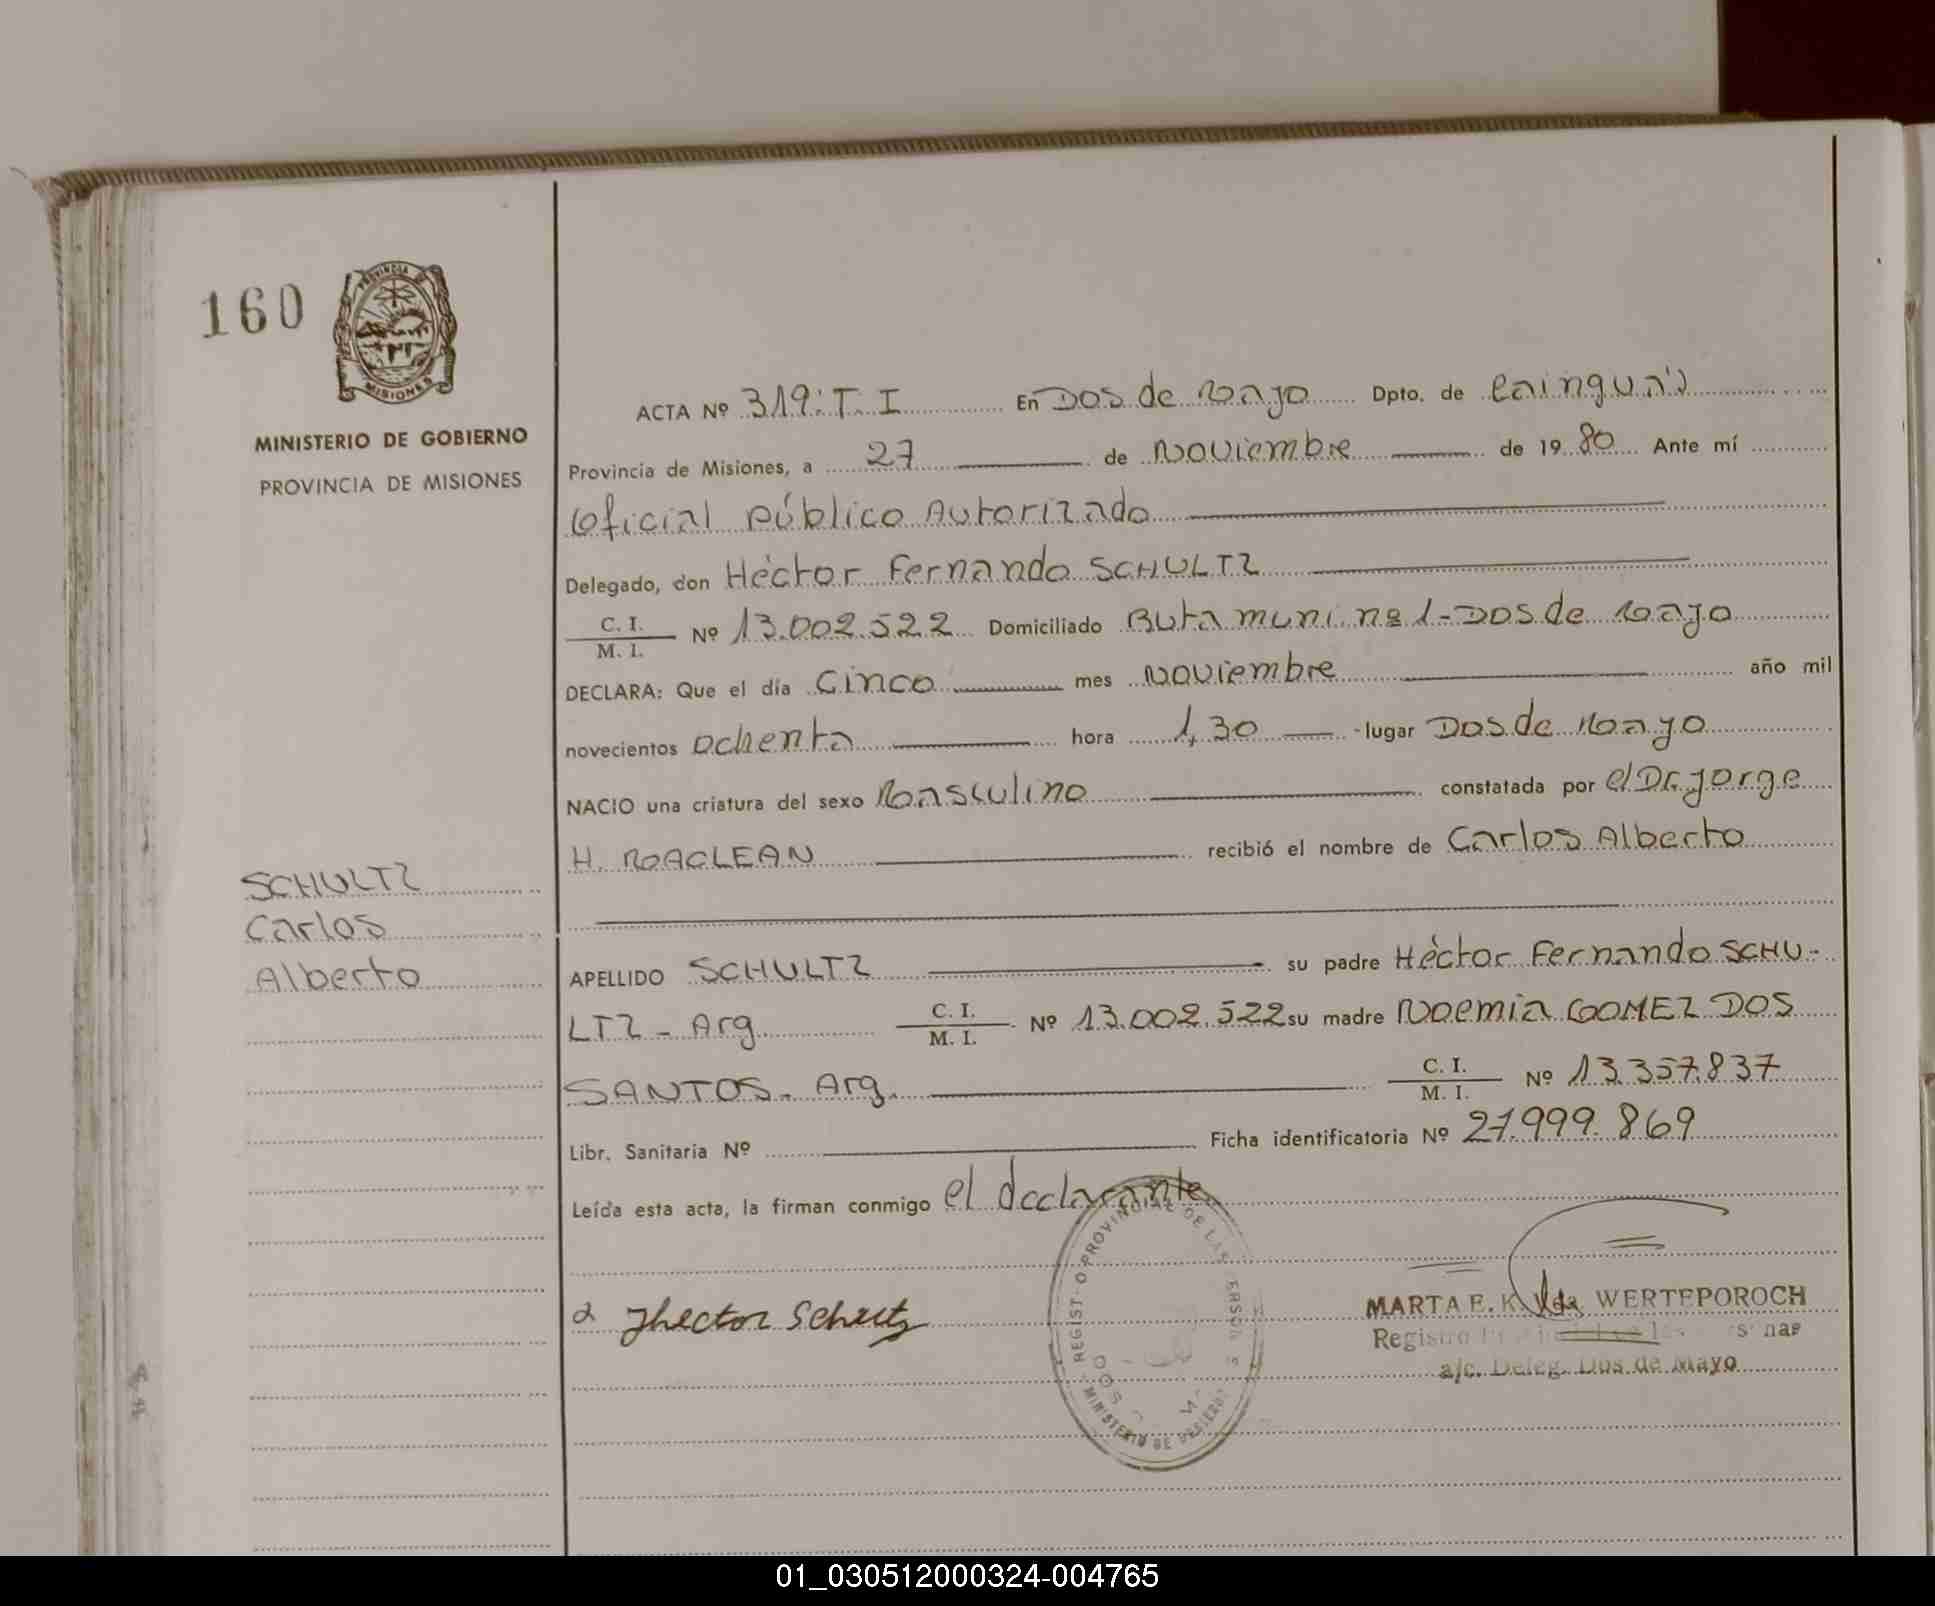 160
PROVINCIA DE
MISIONES
MINISTERIO DE GOBIERNO
PROVINCIA DE MISIONES
SCHULTZ
Carlos
Alberto
ACTA Nº 319: T. I En Dos de Mayo Dpto. de Cainguás
Provincia de Misiones, a 27 de Noviembre de 19 80 Ante mí
Oficial Público Autorizado
Delegado, don Héctor Fernando SCHULTZ
C. I.
M. I. Nº 13.002.522 Domiciliado Ruta muni. nº 1 - Dos de Mayo
DECLARA: Que el día Cinco mes Noviembre año mil
novecientos ochenta hora 1,30 - lugar Dos de Mayo
NACIO una criatura del sexo Masculino constatada por el Dr. Jorge
H. MACLEAN recibió el nombre de Carlos Alberto
APELLIDO SCHULTZ su padre Héctor Fernando SCHU-
LTZ - Arg C. I. M. I. Nº 13.002.522 su madre Noemia GOMEZ DOS
SANTOS - Arg. C. I. M. I. Nº 13.357.837
Libr. Sanitaria Nº Ficha identificatoria Nº 27.999.869
Leída esta acta, la firman conmigo el declarante
REGIST O PROVINCIAL DE LAS ERSON S
DOS MINISTERIO DE GOBIERNO
Hector Schultz
MARTA E. K. Vda. WERTEPOROCH
a/c. Deleg. Dos de Mayo
01_030512000324-004765